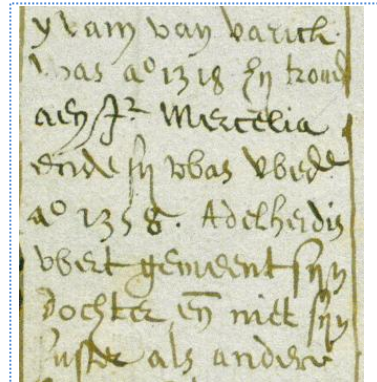 yvam van varick.
was aº 1318 hy troud
aen Jr. Mercelia
ende sy vvas vvede
aº 1358. Adelherdis
vvert gemeent syn
Dochter eñ niet syn
suster als andere